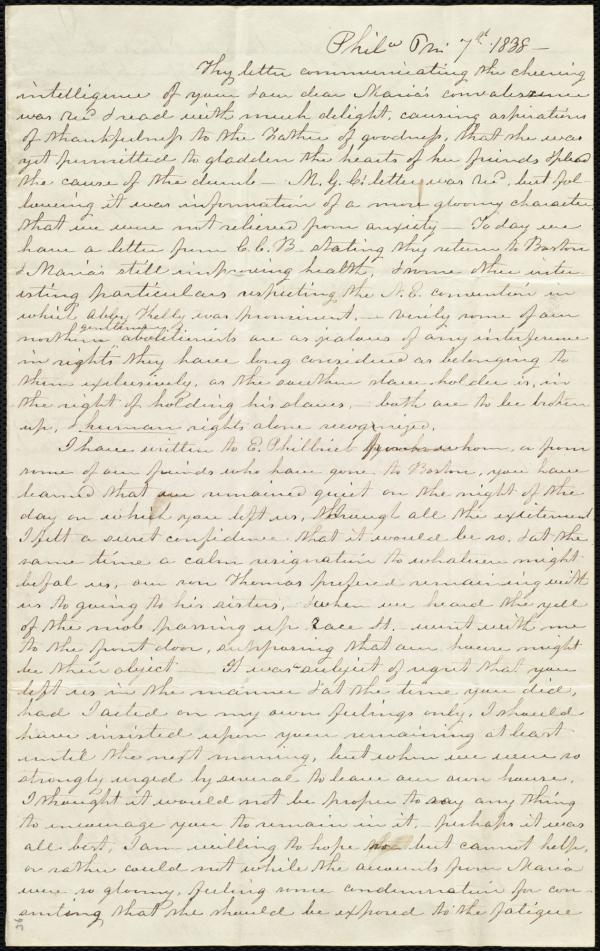 Phila 6 mo 7th 1838 –
Thy letter communicating the cheering
intelligence of your & our dear Maria's convalescence
was recd & read with much delight, causing aspirations
of thankfulness to the Father of goodness, that she was
yet permitted to gladden the hearts of her friends & plead
the cause of the dumb – M. G. C's letter was recd, but fol-
lowing it was information of a more gloomy character
that we were not relieved from anxiety – To day we
have a letter from C. C. B. stating thy return to Boston
& Maria's still improving health, & some other inter-
esting particulars respecting the N. E. convention in
which Abby Kelly was prominent, – verily some of our
northern gentlemen abolitionists are as jealous of any interference
in rights they have long considered as belonging to
them exclusively, as the southern slave holder is, in
the right of holding his slaves, – both are to be broken
up, & human rights alone recognized.
I have written to E. Philbrick from whom, or from
some of our friends who have gone to Boston, you have
learned that we remained quiet on the night of the
day on which you left us, through all the excitement
I felt a secret confidence that it would be so, & at the
same time a calm resignation to whatever might
befal us, our son Thomas prefered remaining with
us to going to his sisters, & when we heard the yell
of the mob passing up Race St. went with me
to the front door, supposing that our house might
be their object – It was subject of regret that you
left us in the manner & at the time you did,
had I acted on my own feelings only, I should
have insisted upon your remaining at least
until the next morning, but when we were so
strongly urged by several to leave our own house,
I thought it would not be proper to say any thing
to encourage you to remain in it, – perhaps it was
all best, I am willing to hope but cannot help,
or rather could not while the accounts from Maria
were so gloomy, feeling some condemnation for con-
senting that she should be exposed to the fatigue
36